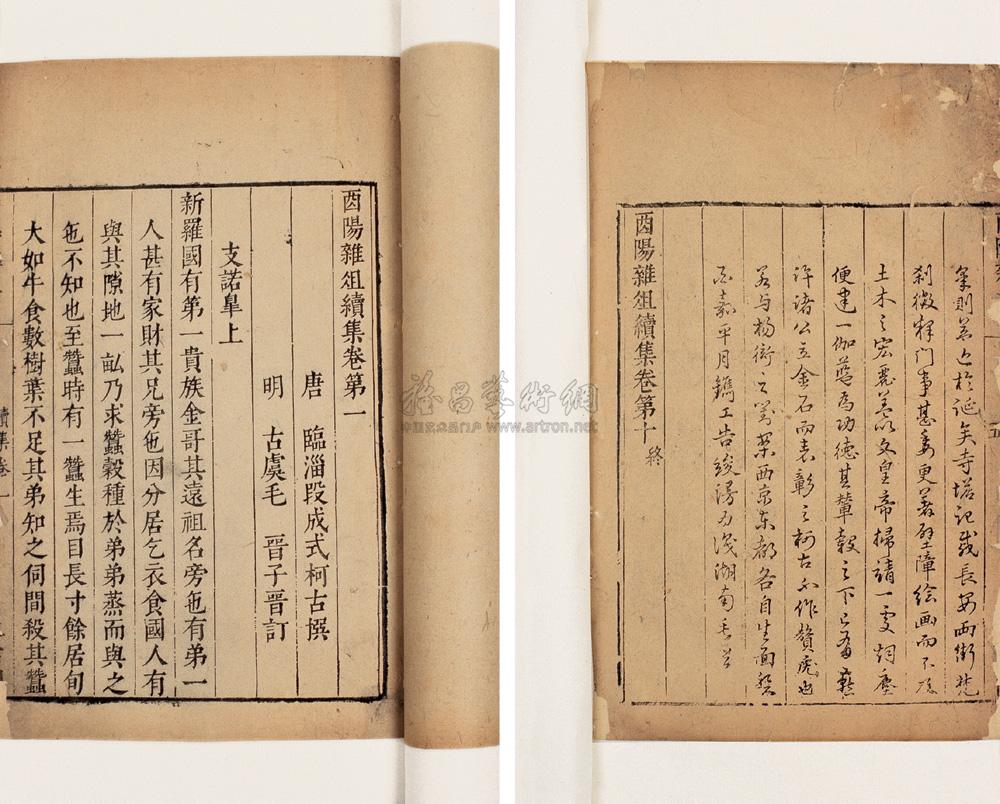 酉陽雜俎續集卷第一
唐 臨淄段成式柯古撰
明 古虞毛 晉子晉訂
支諾皐上
新羅國有第一貴族金哥其遠祖名旁㐌有弟一
人甚有家財其兄旁㐌因分居乞衣食國人有
與其隙地一畆乃求蠶穀種於弟弟蒸而與之
㐌不知也至蠶時有一蠶生焉目長寸餘居旬
大如牛食數樹葉不足其弟知之伺間殺其蠶
續集卷一
則 於涎矣寺塔記載長安兩街梵
刹徵釋门事甚委更著壁障绘画而不及
土木之宏麗蓋以文皇帝掃清一處烟塵
便建一伽藍為功德其輦轂之下
许諸公立金石而表彰之柯古不作贅尨也
若与杨衒之 西京东都各自生面
嘉平月鐫工告竣漫为识湖南毛晋
酉陽雜俎續集卷第十 終
雅昌藝術網
中国艺术品门户 www.artron.net